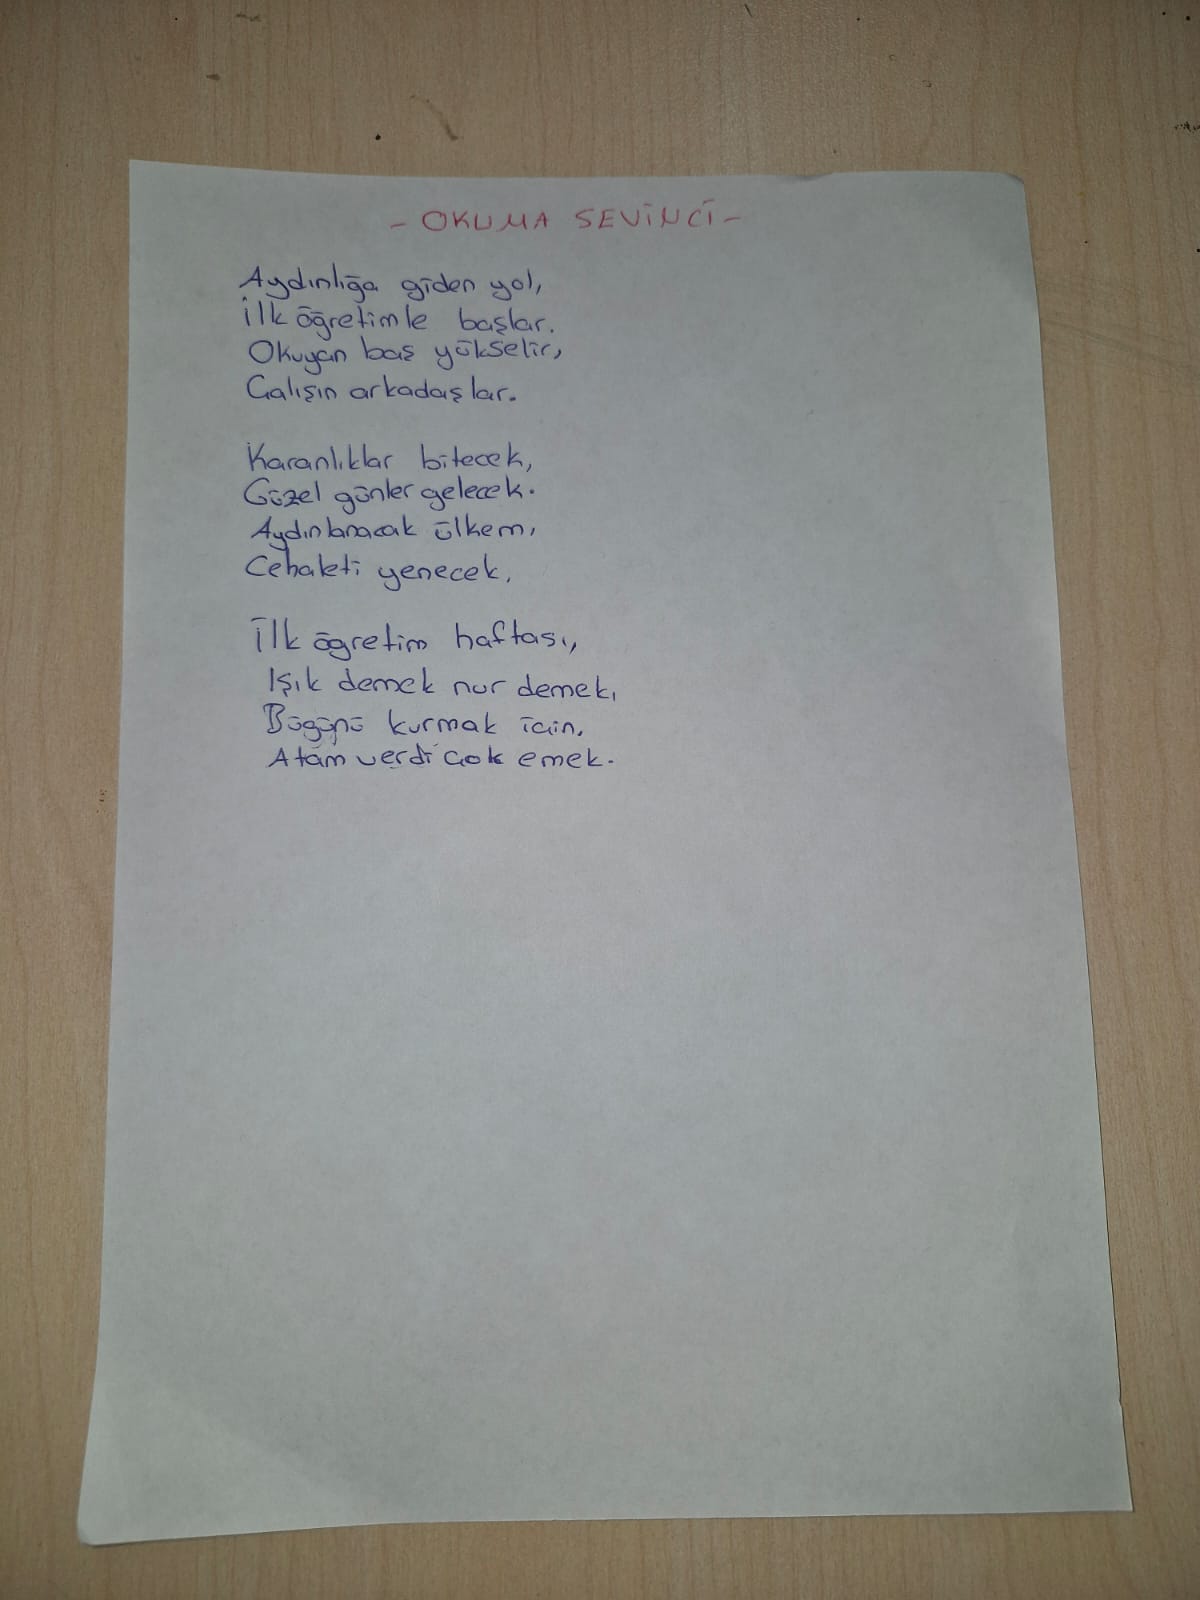 - OKUMA SEVİNCİ -
Aydınlığa giden yol,
İlk öğretimle başlar.
Okuyan baş yükselir,
Çalışın arkadaşlar.
Karanlıklar bitecek,
Güzel günler gelecek.
Aydınlanacak ülkem,
Cehaleti yenecek,
İlk ögretim haftası,
Işık demek nur demek,
Bügünü kurmak için,
Atam verdi çok emek.